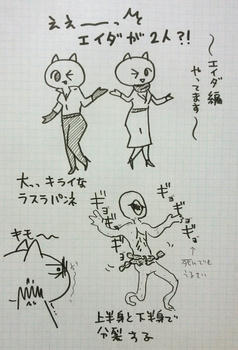 ええーーっ
エイダが2人?!
〜エイダ編
やってます〜
大っっキライな
ラスラパンネ
ギョ
ギョ
ギョ
ギョ
ギョ
ギョ
キモー
死んでも
うるさい
上半身と下半身で
分裂する